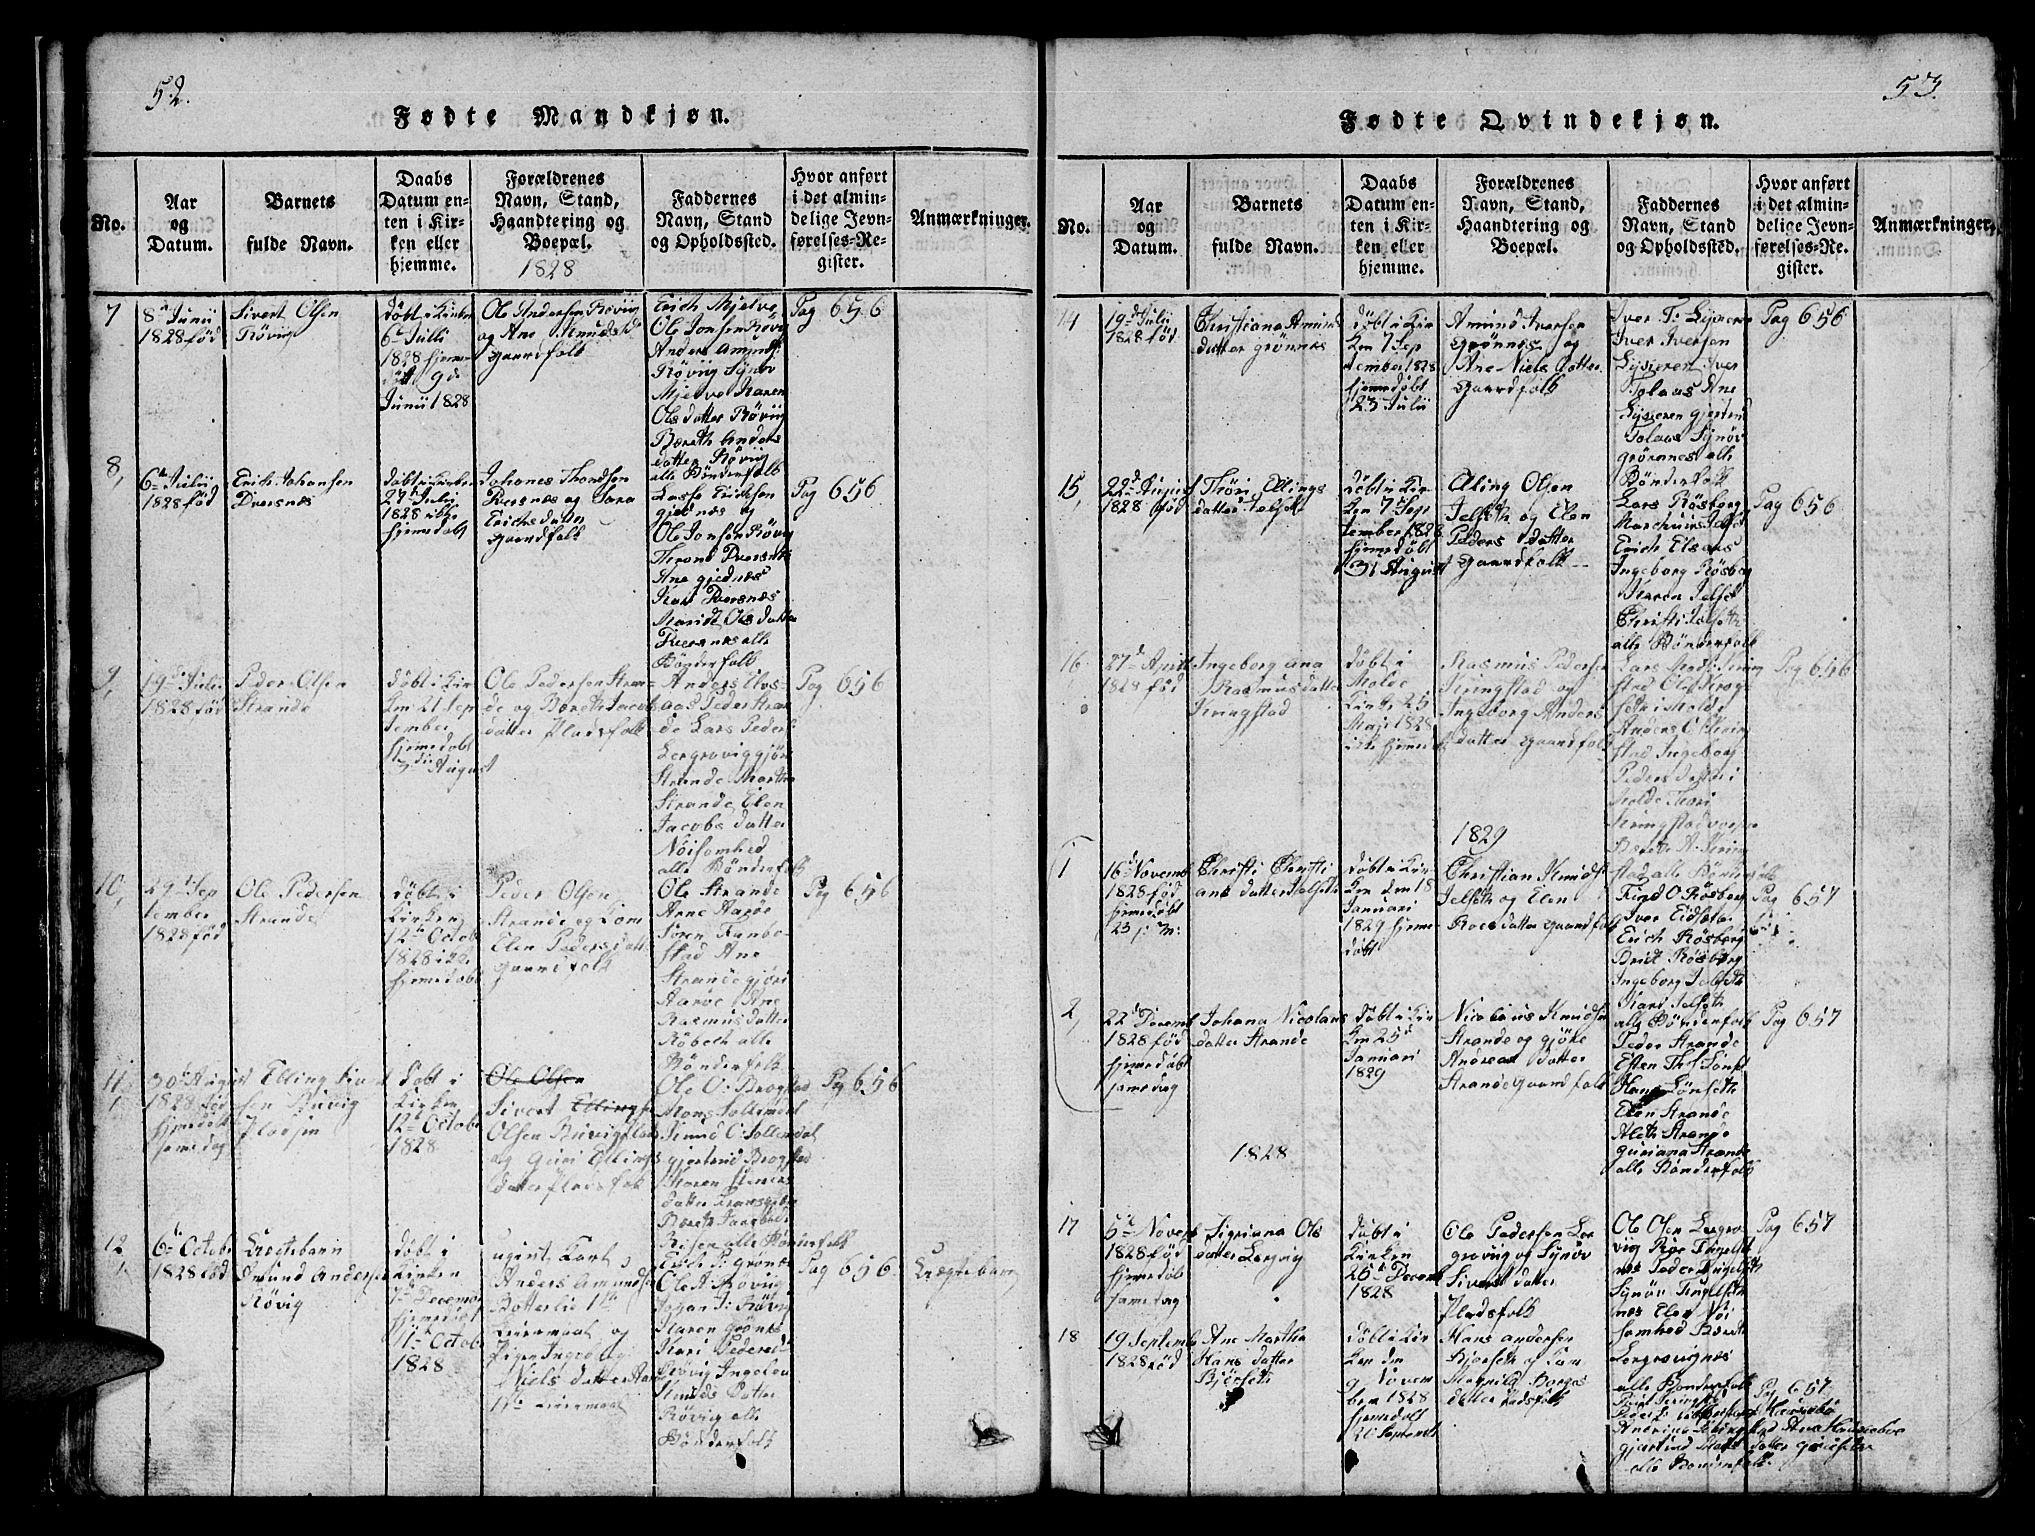 52.
Fødte Mandkjøn.
No.
Aar
og
Datum.
Barnets
fulde Navn.
Daabs
Datum en-
ten i Kir-
ken eller
hjemme.
Forældrenes
Navn, Stand,
Haandtering og
Boepæl.
1828
Faddernes
Navn, Stand
og Opholdssted.
Hvor anført
i det almin-
delige Jevn-
førelses-Re-
gister.
Anmærkninger.
7
8de Junii
1828 fød
Sivert Olsen
Røvig
döbt i Kirken
6te Julii
1828 hjemme
döbt 9de
Junii 1828
Ole Andersen Røvig
og Ane
Gaardfolk
Erich Mjelve
Ole Jonsen Røvig
Anders Amunds
Røvig Synøv
Mjelve Karen
Ols datter Røvig
Bereth Anders
datter Røvig
alle Bønderfolk
Pag 656
8,
6te Julii
1828 fød
Erich Johansen
Dversnæs
döbt i Kirken
27de Julii
1828 ikke
hjemedøbt
Johanes Thondsen
Dversnæs og Sara
Erichsdatter
Gaardfolk
Lasse Erichsen
gjednæs og
Ole Jonsen Røvig
Thrond Dversnæs
Ane gjednæs
Kari Dversnæs
Marit Ols datter
Dversnæs alle
Bönderfolk
Pag 656
9,
19de Julii
1828 fød
Peder Olsen
Strande
döbt i Kir-
ken 21 Sep
tember
hjemedøbt
3die August
Ole Pedersen Stran-
de og Bereth Jacobs
datter Pladsfolk
Anders Elvs-
aas Peder Stran
de Lars Peders
Lergrovig gjøri
Strande Martha
Strande Elen
Jacobs datter
Nøisomhed
alle Bønderfolk
Pag 656
10,
29de Sep
tember
1828 fød
Ole Pedersen
Strande
döbt i
Kirken
12te Octob
1828 ikke
hjemedøbt
Peder Olsen
Strande og Kone
Elen Pedersdatter
Gaardfolk
Ole Strande
Arne Aarøe
Søren Ranbo-
stad Ane
Strande gjøri
Aarøe Ane
Rasmusdatter
Röbech alle
Bönderfolk
Pag 656
11,
30te August
1828 fød
hjemedöbt
samedag
Elling Sivert
sen
Pladsen
Döbt i
Kirken
12te Octobr
1828
Ole Olsen
Sivert Ellings
Olsen
og Guri Ellings
datter Pladsfolk
Ole O: Bragstad
Mons Sollemdal
Knud O: Sollemdal
gjertrud Bragstad
Karen
datter
Bereth
Risen alle Bönderfolk
Pag 656
12,
6te Octobr
1828 fød
Uægtebarn
Amund Andersen
Røvig
Döbt i
Kirken
7de Decemb
hjemedöbt
11te Octobr
1828
ugivt Karl
Anders Amundsen
Batterlid 1te
Leiermaal og
Pigen Ingebor
Niels datter
1te Leiermaal
Erich P: Grønæs
Ole A: Røvig
Johan J: Røvig
Karen Grønæs
Kari Pedersd
Røvig Ingeborg
Knuds Datter
Røvig alle
Bönderfolk
Pag 656
Uægtebarn
53.
Fødte Qvindekjøn.
No.
Aar
og
Datum.
Barnets
fulde Navn.
Daabs
Datum en-
ten i Kir-
ken eller
hjemme.
Forældrenes
Navn, Stand,
Haandtering og
Boepæl.
Faddernes
Navn, Stand
og Opholdssted.
Hvor anført
i det almin-
delige Jevn-
førelses-Re-
gister.
Anmærkninger.
14
19de Julii
1828 fød
Christiana Amund
datter Grønnæs
döbt i Kir
ken 7 Sep
tember 1828
hjemedøbt
23 Julii
Amund Iversen
Grønnæs og
Ane Niels Datter
Gaardfolk
Iver T: Lyseren
Iver Iversen
Lyseren Iver
Tolaas Ane
Lyseren gjertrud
Tolaas Synøv
grønnæs alle
Bönderfolk
Pag 656
15,
22de August
1828 fød
Thøri Ellings
datter Jelseth
döbt i Kir-
ken 7 Sep
tember 1828
hjemedöbt
31 August
Elling Olsen
Jelseth og Elen
Peders datter
Gaardfolk
Lars Røsberg
Jelset
Erich Elsaas
Ingeborg Røsberg
Karen Jelset
Christi Jelseth
alle Bönderfolk
Pag 656
16
27de April
1828 fød
Ingeborg Ana
Rasmusdatter
Kringstad
döbt i
Molde
Kirke 25
Maji 1828
ikke hjemedöbt
Rasmus Pedersen
Kringstad og
Ingeborg Anders
datter Gaardfolk
Lars Mads: Kring
stad Ole Krogs
i Molde
Anders O: Kring
stad Ingeborg
Peders datter i
Molde Thøri
Kringstad
Bereth A: Kring
stad alle Bönderfolk
Pag 656
1829
1
16de Novemb
1828 fød
hjemedöbt
23 s: M:
Christi Christi
ans datter Jelseth
Döbt i Kir
ken den 18
Januari
1829 hjeme
döbt
Christian Knuds
Jelseth og Elen
Roes datter Gaardfolk
Find O Røsberg
Iver Eidsæter
Erich Røsberg
Brit Røsberg
Ingeborg Jelseth
Kari Jelseth
alle Bönderfolk
Pag 657
2,
22de Decemb
1828 fød
hjemedöbt
samedag
Johana Nicolaus
datter Strande
Döbt i Kir
ken 25de
Januari
1829
Nicolaus Knudsen
Strande og gjöre
Andreas datter
Strande Gaardfolk
Peder Strande
Esten Ths Lønset
Hans Lønseth
Elen Strande
Aleth Strande
Guriana Strande
alle Bönderfolk
Pag 657
1828
17
5te Novemb
1828 fød
hjemedöbt
samedag
Sigriana Ols
datter Lergrvig
Döbt i
Kirken
26de Decemb
1828
Ole Pedersen Ler
grovig og Synöv
Sivert datter
Pladsfolk
Ole Olsen Lergro
vig Roe Tingelst
næs Peder Tingelsth
Synöv Tingelset
næs Elen Nöi
somhed Bereth
Lergrovignæs
alle Bönderfolk
Pag 657
18
19 Septemb
1828 fød
Ane Martha
Hans datter
Björseth
döbt i Kir
ken den
9 Novem
ber 1828
hjemedöbt
20 Septemb
Hans Andersen
Bjorseth og Kone
Magnild
datter Pladsfolk
Pag 657
gjertrud Mads datter
alle Bønderfolk